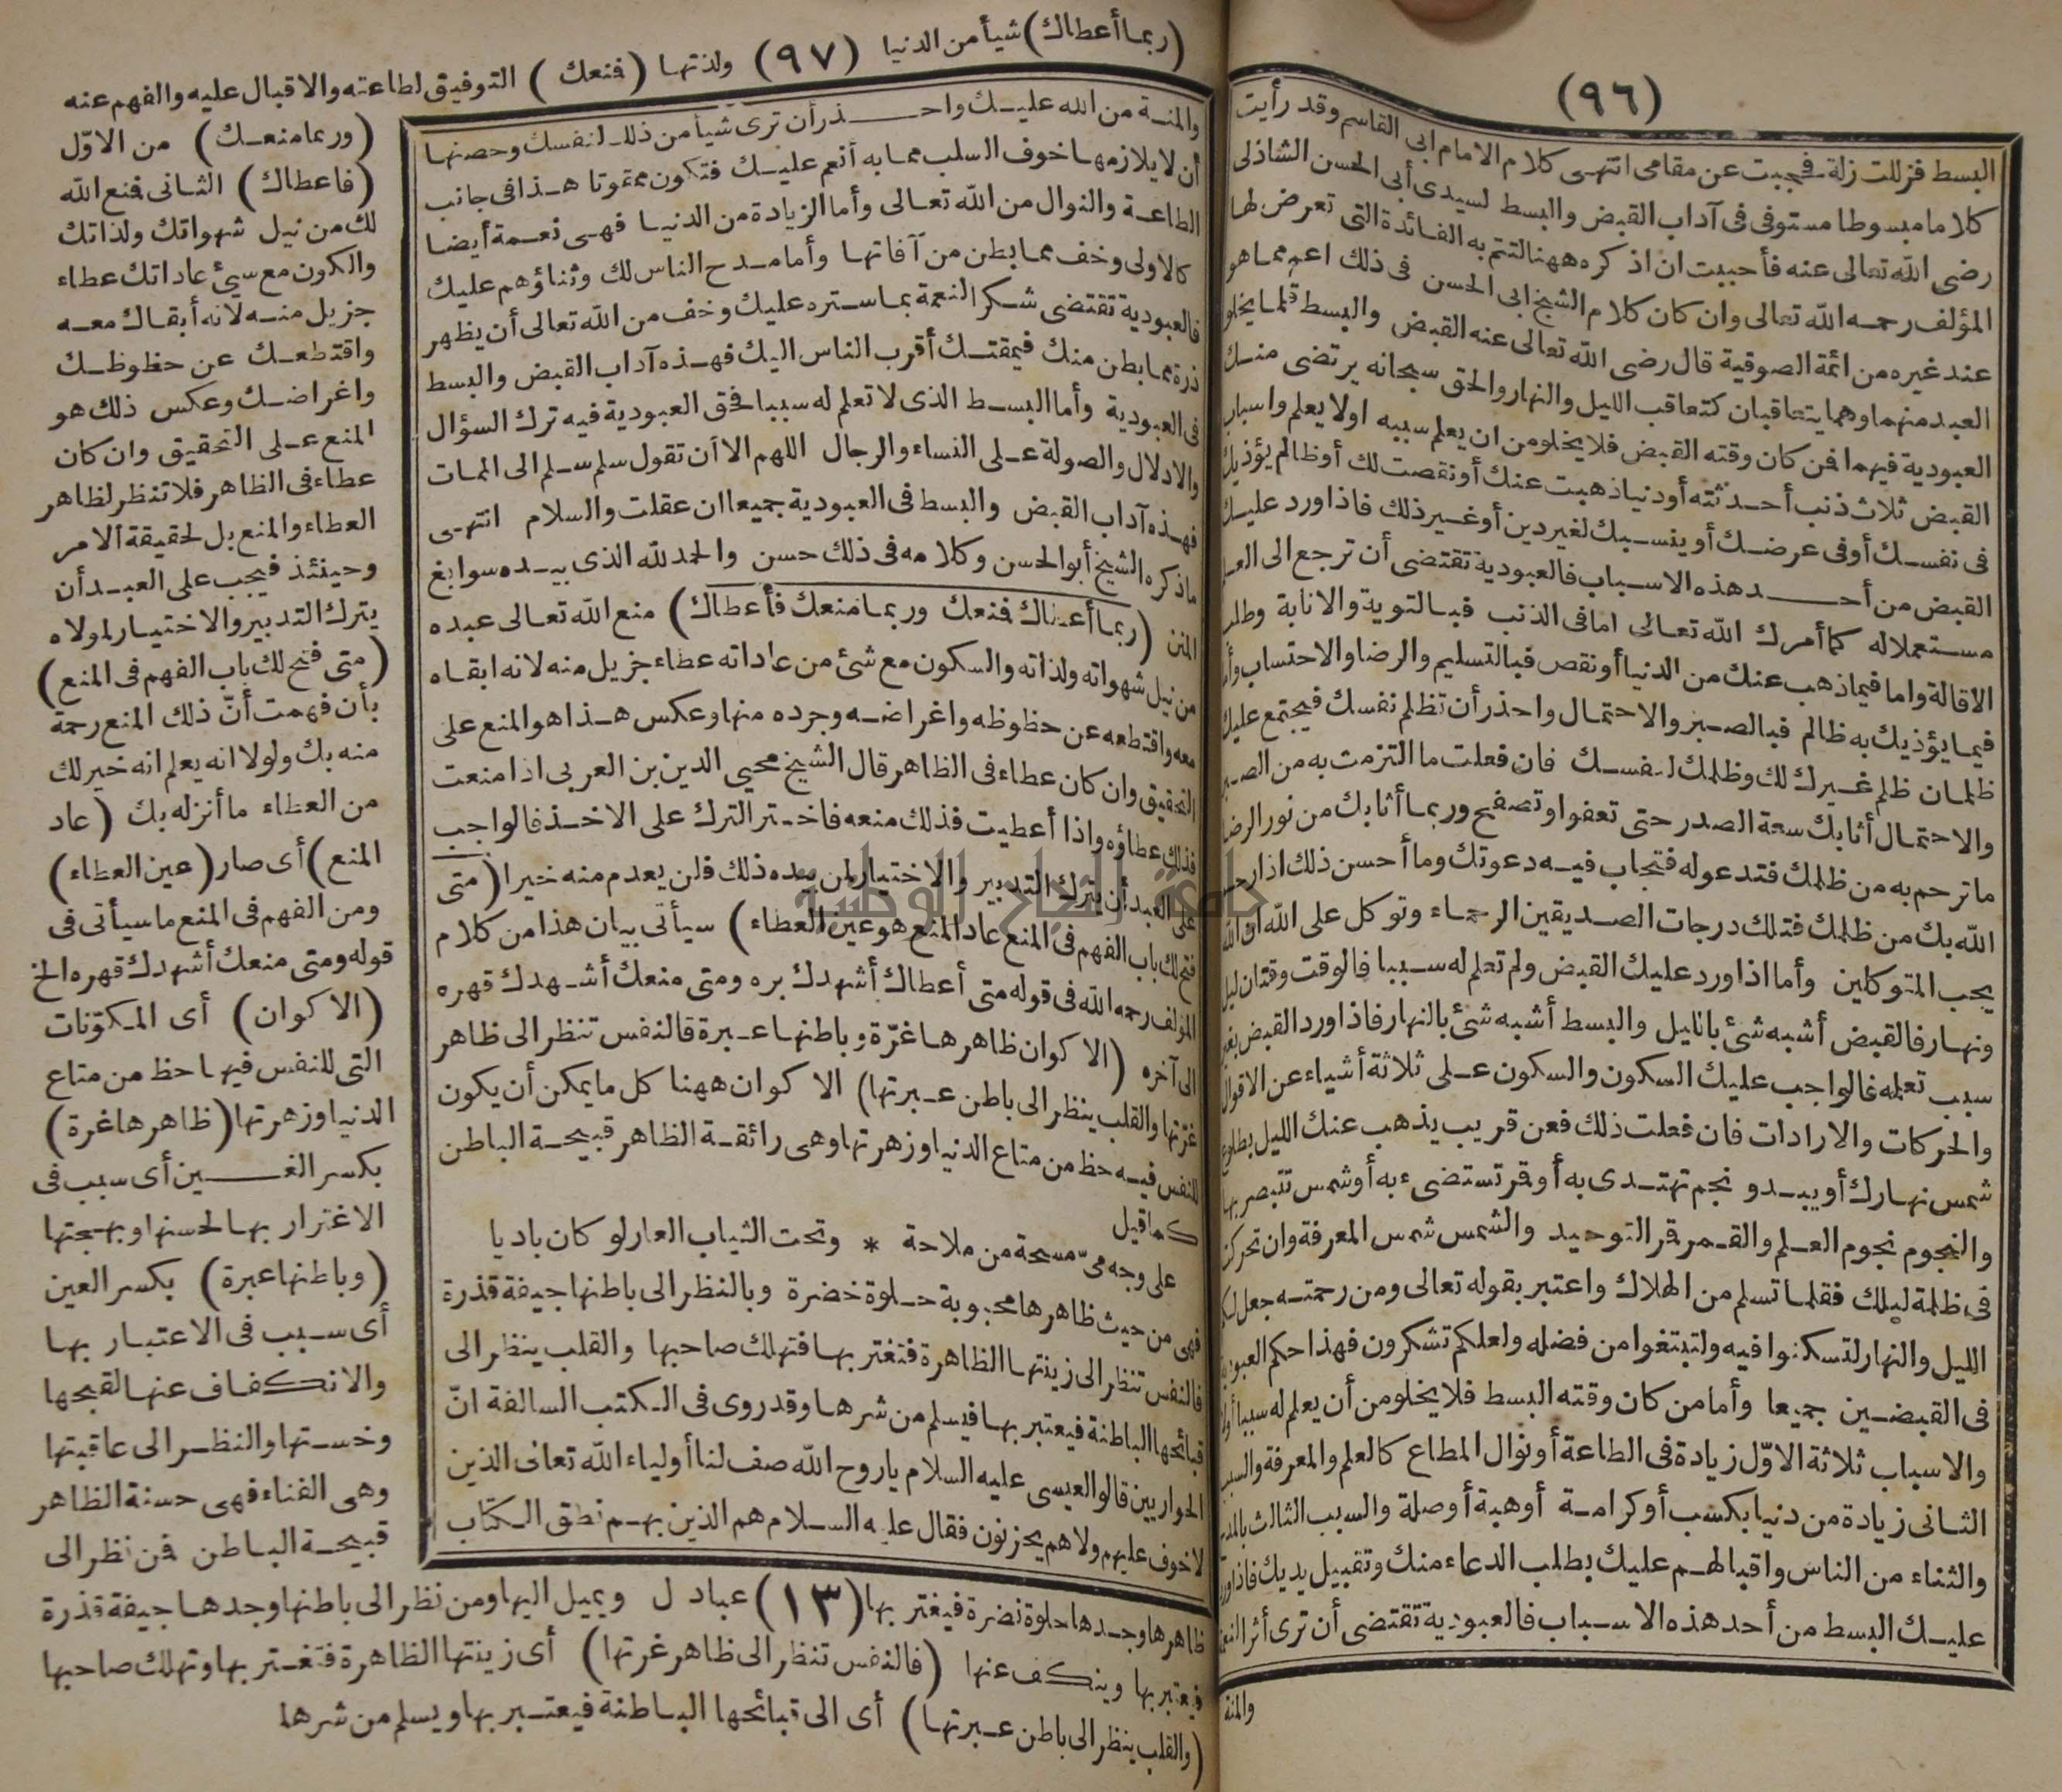 (٩٦)
البسط فزللت زلة فحجبت عن مقامى انتهى كلام الامام ابى القاسم وقد رأيت
كلاما مبسوطا مستوفى فى آداب القبض والبسط لسيدى أبى الحسن الشاذلى
رضى الله تعالى عنه فأحببت ان اذكره ههنا لتتم به الفائدة التى تعرض لها
المؤلف رحمه الله تعالى وان كان كلام الشيخ ابى الحسن فى ذلك اعم مما هو
عند غيره من ائمة الصوقية قال رضى الله تعالى عنه القبض والبسط قلما يخلو
العبد منهما وهما يتعاقبان كتعاقب الليل والنهار والحق سبحانه يرتضى منك
العبودية فيهما فمن كان وقته القبض فلا يخلو من ان يعلم سببه اولا يعلم واسباب
القبض ثلاث ذنب أحدثته أو دنيا ذهبت عنك أو نقصت لك أو ظالم يؤذيك
فى نفسك أو فى عرضك أو ينسبك لغير دين أو غير ذلك فاذا ورد عليك
القبض من أحد هذه الاسباب فالعبودية تقتضى أن ترجع الى العلم
مستعملا له كما أمرك الله تعالى اما فى الذنب فبالتوبة والانابة وطلب
الاقالة واما فيما ذهب عنك من الدنيا أو نقص فبالتسليم والرضا والاحتساب وأما
فيما يؤذيك به ظالم فبالصبر والاحتمال واحذر أن تظلم نفسك فيجتمع عليك
ظلمان ظلم غيرك لك وظلمك لنفسك فان فعلت ما التزمت به من الصبر
والاحتمال أثابك سعة الصدر حتى تعفوا وتصفح وربما أثابك من نور الرضا
ما ترحم به من ظلمك فتدعو له فتجاب فيه دعوتك وما أحسن ذلك اذا رحم
الله بك من ظلمك فتلك درجات الصديقين الرحماء وتوكل على الله ان الله
يحب المتوكلين وأما اذا ورد عليك القبض ولم تعلم له سببا فالوقت وقتان ليل
ونهار فالقبض أشبه شئ بالليل والبسط أشبه شئ بالنهار فاذا ورد القبض بغير
سبب تعلمه فالواجب عليك السكون والسكون على ثلاثة أشياء عن الاقوال
والحركات والارادات فان فعلت ذلك فعن قريب يذهب عنك الليل بطلوع
شمس نهارك أو يبدو نجم تهتدى به أو قمر تستضىء به أو شمس تتبصر بها
والنجوم نجوم العلم والقمر قمر التوحيد والشمس شمس المعرفة وان تحركت
فى ظلمة ليلك فقلما تسلم من الهلاك واعتبر بقوله تعالى ومن رحمته جعل لكم
الليل والنهار لتسكنوا فيه ولتبتغوا من فضله ولعلكم تشكرون فهذا حكم العبودية
فى القبضين جميعا وأما من كان وقته البسط فلا يخلو من أن يعلم له سببا أولا
والاسباب ثلاثة الاوّل زيادة فى الطاعة أو نوال المطاع كالعلم والمعرفة والسبب
الثانى زيادة من دنيا بكسب أو كرامة أو هبة أو صلة والسبب الثالث بالمدح
والثناء من الناس واقبالهم عليك بطلب الدعاء منك وتقبيل يديك فاذا ورد
عليك البسط من أحد هذه الاسباب فالعبودية تقتضى أن ترى أثر النعمة
والمنة
(ربما أعطاك) شيأ من الدنيا (٩٧) ولذتها (فمنعك) التوفيق لطاعته والاقبال عليه والفهم عنه
والمنة من الله عليك واحذر أن ترى شيأ من ذلك لنفسك وحصنها
أن لا يلازمها خوف السلب مما به أنعم عليك فتكون ممقوتا هذا فى جانب
الطاعة والنوال من الله تعالى وأما الزيادة من الدنيا فهى نعمة أيضا
كالاولى وخف مما بطن من آفاتها وأما مدح الناس لك وثناؤهم عليك
فالعبودية تقتضى شكر النعمة بما ستره عليك وخف من الله تعالى أن يظهر
ذرة مما بطن منك فيمقتك أقرب الناس اليك فهذه آداب القبض والبسط
فى العبودية وأما البسط الذى لا تعلم له سببا فحق العبودية فيه ترك السؤال
والادلال والصولة على النساء والرجال اللهم الا أن تقول سلم سلم الى الممات
فهذه آداب القبض والبسط فى العبودية جميعا ان عقلت والسلام انتهى
ما ذكره الشيخ أبو الحسن وكلامه فى ذلك حسن والحمد لله الذى بيده سوابغ
المنن (ربما أعطاك فمنعك وربما منعك فأعطاك) منع الله تعالى عبده
من نيل شهواته ولذاته والسكون مع شئ من عاداته عطاء جزيل منه لانه ابقاه
معه واقتطعه عن حظوظه واغراضه وجرده منها وعكس هذا هو المنع على
التحقيق وان كان عطاء فى الظاهر قال الشيخ محيى الدين بن العربى اذا منعت
فذلك عطاؤه واذا أعطيت فذلك منعه فاختر الترك على الاخذ فالواجب
على العبد أن يترك التدبير والاختيار لمن بيده ذلك فلن يعدم منه خيرا (متى
فتح لك باب الفهم فى المنع عاد المنع هو عين العطاء) سيأتى بيان هذا من كلام
المؤلف رحمه الله فى قوله متى أعطاك أشهدك بره ومتى منعك أشهدك قهره
الى آخره (الاكوان ظاهرها غرّة وباطنها عبرة فالنفس تنظر الى ظاهر
غرّتها والقلب ينظر الى باطن عبرتها) الاكوان ههنا كل ما يمكن أن يكون
للنفس فيه حظ من متاع الدنيا وزهرتها وهى رائقة الظاهر قبيحة الباطن
كما قيل
على وجه مىّ مسحة من ملاحة * وتحت الثياب العار لو كان باديا
فهى من حيث ظاهرها محبوبة حلوة خضرة وبالنظر الى باطنها جيفة قذرة
فالنفس تنظر الى زينتها الظاهرة فتغتر بها فتهلك صاحبها والقلب ينظر الى
قبائحها الباطنة فيعتبر بها فيسلم من شرها وقد روى فى الكتب السالفة انّ
الحواريين قالوا لعيسى عليه السلام يا روح الله صف لنا أولياء الله تعالى الذين
لا خوف عليهم ولا هم يحزنون فقال عليه السلام هم الذين بهم نطق الكتاب
(وربما منعك) من الاوّل
(فاعطاك) الثانى فمنع الله
لك من نيل شهواتك ولذاتك
والكون مع سئ عاداتك عطاء
جزيل منه لانه أبقاك معه
واقتطعك عن حظوظك
واغراضك وعكس ذلك هو
المنع على التحقيق وان كان
عطاء فى الظاهر فلا تنظر لظاهر
العطاء والمنع بل لحقيقة الامر
وحينئذ فيجب على العبد أن
يترك التدبير والاختيار لمولاه
(متى فتح لك باب الفهم فى المنع)
بأن فهمت أنّ ذلك المنع رحمة
منه بك ولولا انه يعلم انه خير لك
من العطاء ما أنزله بك (عاد
المنع) أى صار (عين العطاء)
ومن الفهم فى المنع ما سيأتى فى
قوله ومتى منعك أشهدك قهره الخ
(الاكوان) أى المكوّنات
التى للنفس فيها حظ من متاع
الدنيا وزهرتها (ظاهرها غرة)
بكسر الغين أى سبب فى
الاغترار بها لحسنها وبهجتها
(وباطنها عبرة) بكسر العين
أى سبب فى الاعتبار بها
والانكفاف عنها لقبحها
وخستها والنظر الى عاقبتها
وهى الفناء فهى حسنة الظاهر
قبيحة الباطن فمن نظر الى
ظاهرها وجدها حلوة نضرة فيغتر بها (١٣) عباد ل ويميل اليها ومن نظر الى باطنها وجدها جيفة قذرة
فيعتبر بها وينكف عنها (فالنفس تنظر الى ظاهر غرتها) أى زينتها الظاهرة فتغتر بها وتهلك صاحبها
(والقلب ينظر الى باطن عبرتها) أى الى قبائحها الباطنة فيعتبر بها ويسلم من شرها
جامعة النجاح الوطنية